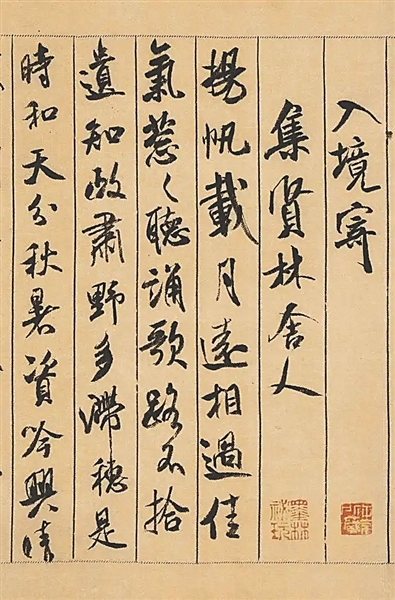 入境寄
集賢林舍人
揚帆載月遠相過佳
氣葱〻聽誦歌路不拾
遺知政肅野多滯穗是
時和天分秋暑資吟興晴
墨林秘玩